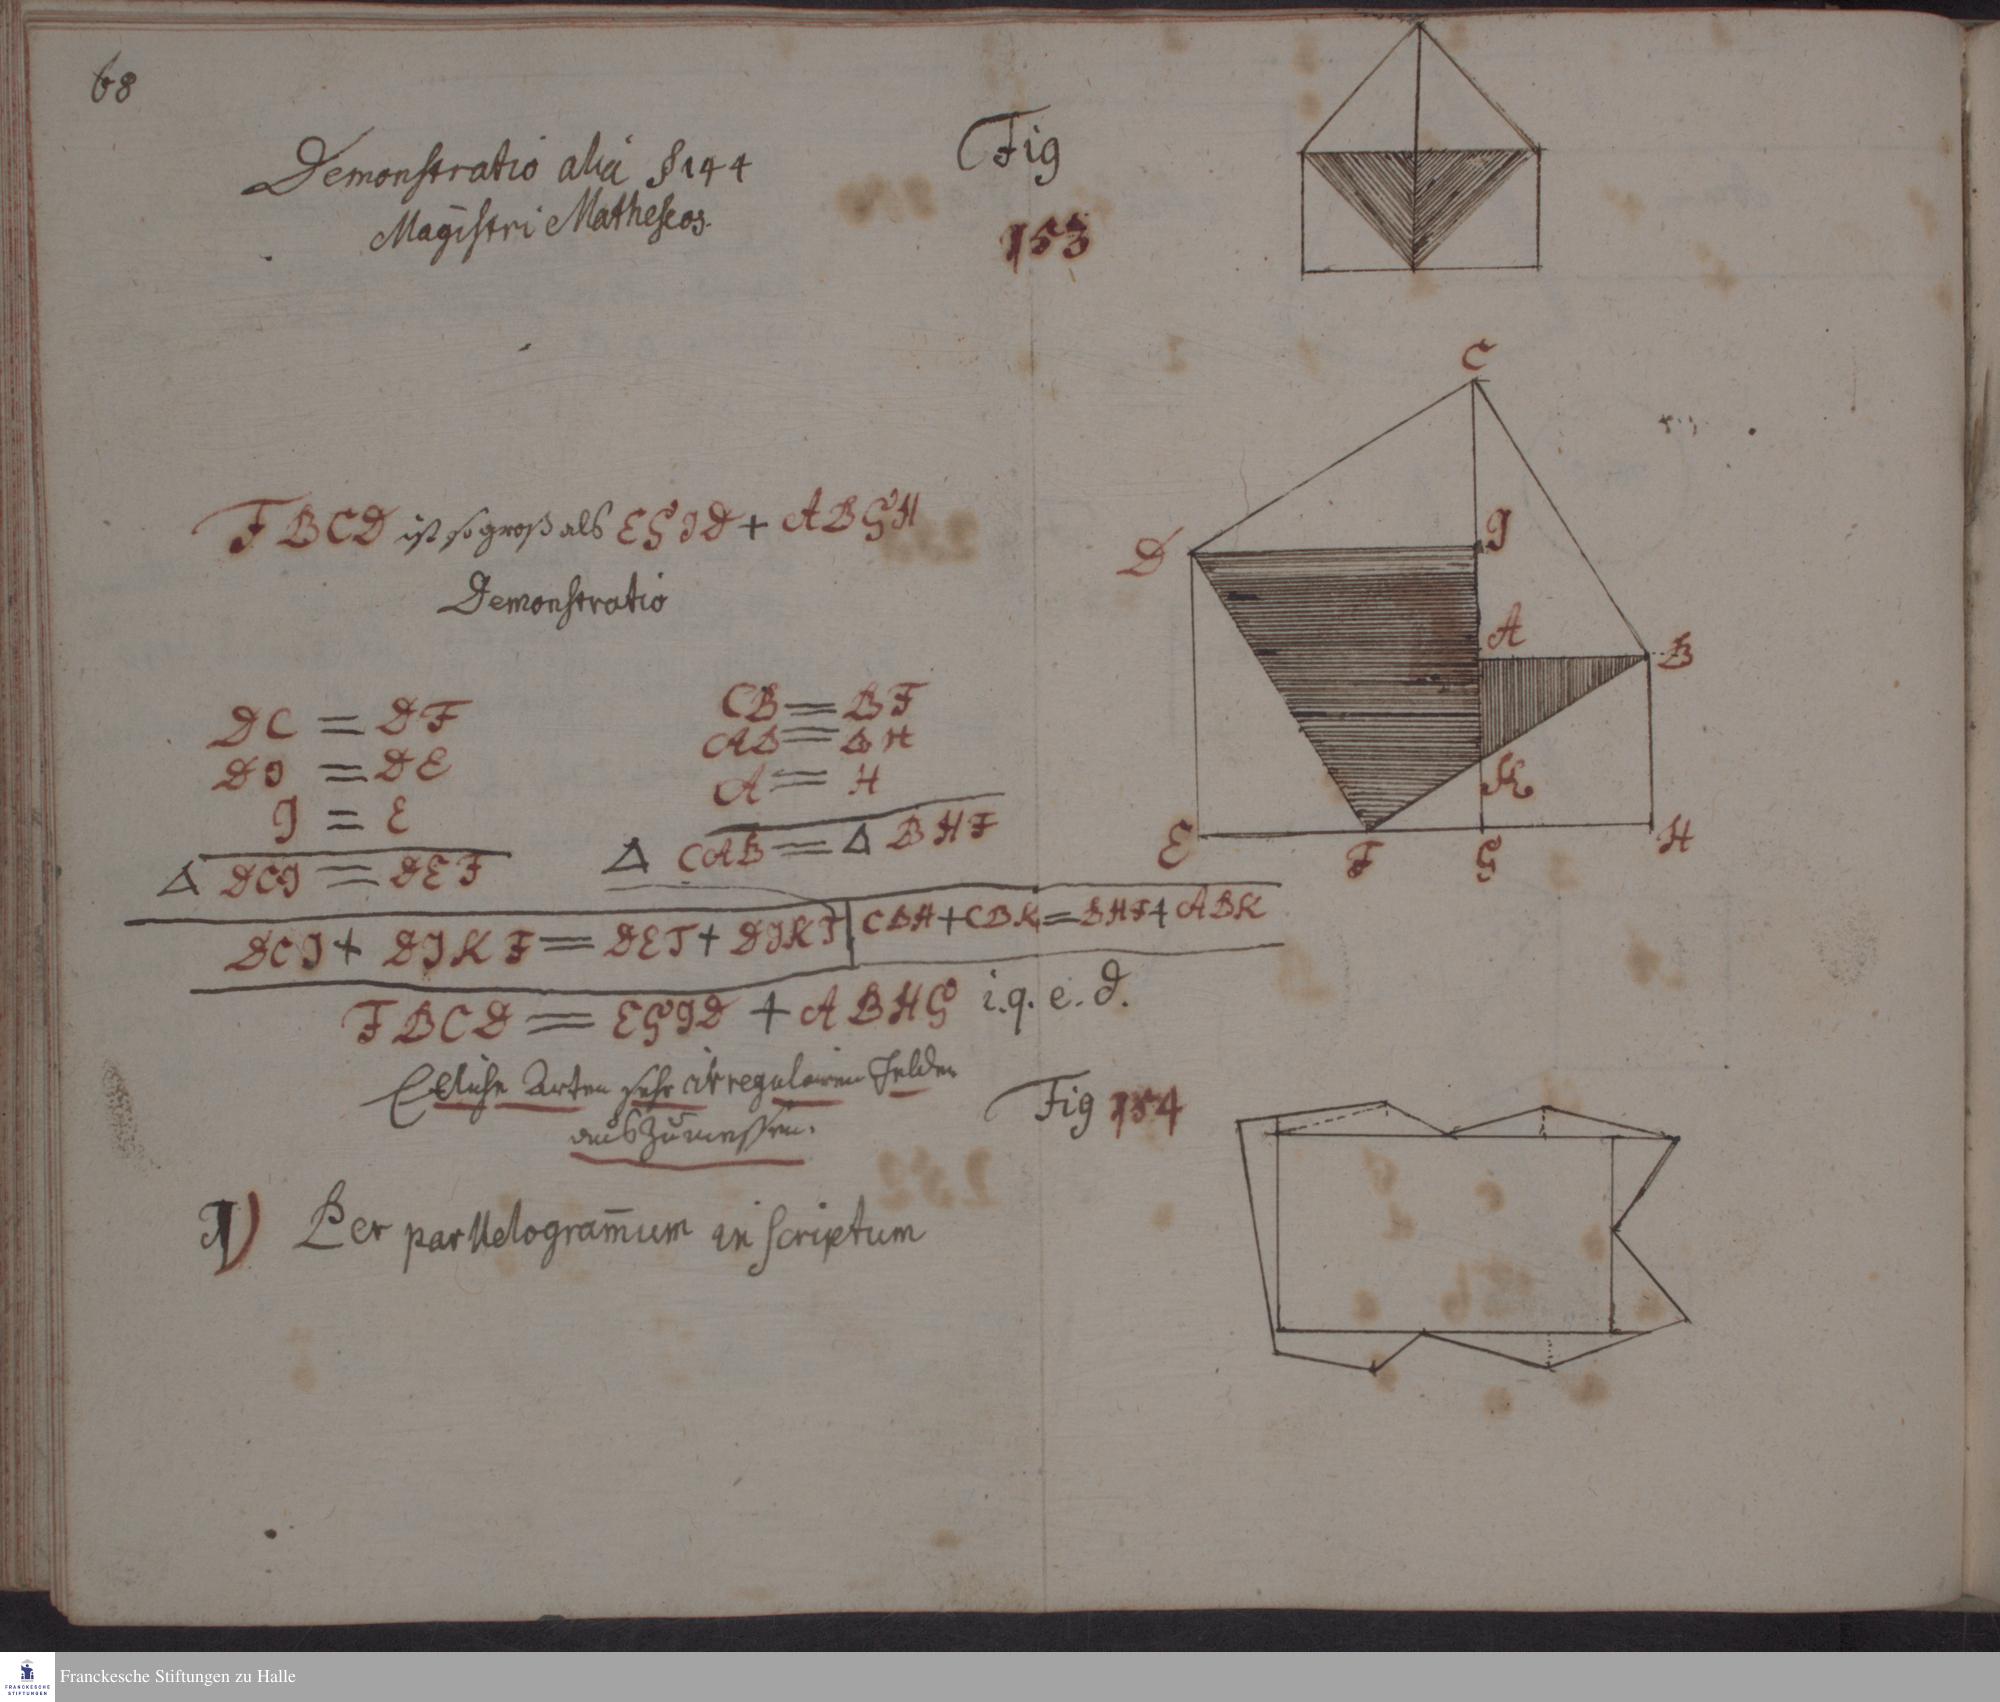 68
Demonstratio alia § 144
Magistri Matheseos.
Fig
153
FBCD ist so groß als EGID + ABGH
Demonstratio
DC = DF
DI = DE
I = E
Δ DCI = DEF
CB = BF
AB = BH
A = H
Δ CAB = Δ BHF
DCI + DIKF = DEF + DIKF | CBA + CBK = BHF + ABK
FBCD = EGID + ABHG i.q.e.d.
Etliche Arten sehr irregulairen Felder
auszumessen.
Fig 154
I) Per parllelogram̄um inscriptum
C
D
I
A
B
K
E
F
G
H
FRANCKESCHE
STIFTUNGEN
Franckesche Stiftungen zu Halle